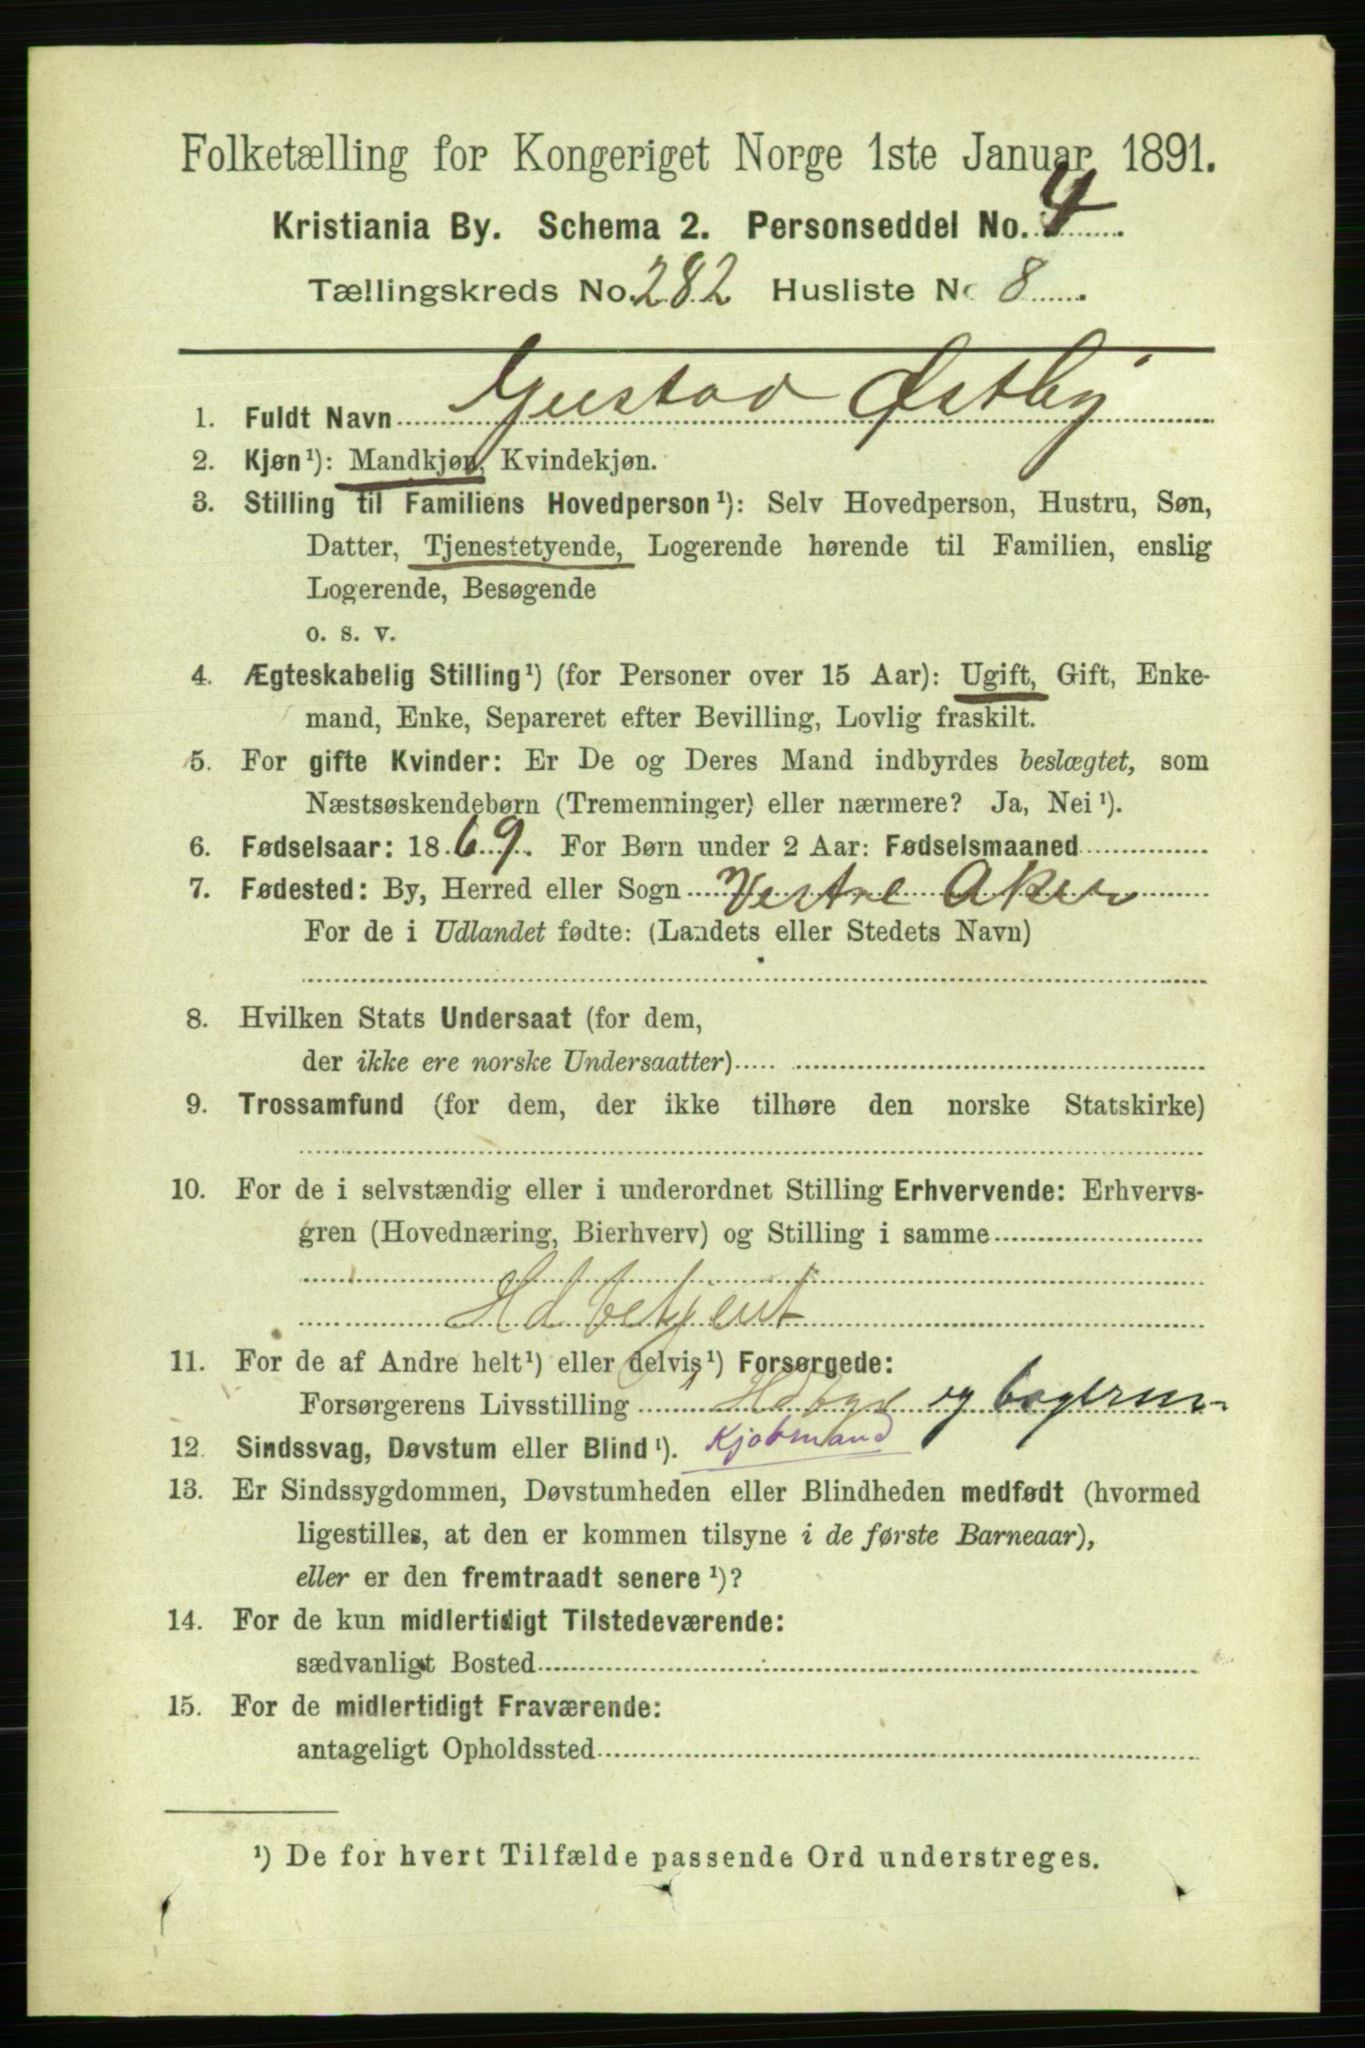 Folketælling for Kongeriget Norge 1ste Januar 1891.
Kristiania By. Schema 2. Personseddel No. 4
Tællingskreds No. 282 Husliste No 8
1. Fuldt Navn Gustav Østby
2. Kjøn¹): Mandkjøn, Kvindekjøn.
3. Stilling til Familiens Hovedperson¹): Selv Hovedperson, Hustru, Søn,
Datter, Tjenestetyende, Logerende hørende til Familien, enslig
Logerende, Besøgende
o. s. v.
4. Ægteskabelig Stilling¹) (for Personer over 15 Aar): Ugift, Gift, Enke-
mand, Enke, Separeret efter Bevilling, Lovlig fraskilt.
5. For gifte Kvinder: Er De og Deres Mand indbyrdes beslægtet, som
Næstsøskendebørn (Tremenninger) eller nærmere? Ja, Nei¹).
6. Fødselsaar: 1869. For Børn under 2 Aar: Fødselsmaaned
7. Fødested: By, Herred eller Sogn Vestre Aker
For de i Udlandet fødte: (Landets eller Stedets Navn)
8. Hvilken Stats Undersaat (for dem,
der ikke ere norske Undersaatter)
9. Trossamfund (for dem, der ikke tilhøre den norske Statskirke)
10. For de i selvstændig eller i underordnet Stilling Erhvervende: Erhvervs-
gren (Hovednæring, Bierhverv) og Stilling i samme
Hdbetjent
11. For de af Andre helt¹) eller delvis¹) Forsørgede:
Forsørgerens Livsstilling og
Kjøbmand
12. Sindssvag, Døvstum eller Blind¹).
13. Er Sindssygdommen, Døvstumheden eller Blindheden medfødt (hvormed
ligestilles, at den er kommen tilsyne i de første Barneaar),
eller er den fremtraadt senere¹)?
14. For de kun midlertidigt Tilstedeværende:
sædvanligt Bosted
15. For de midlertidigt Fraværende:
antageligt Opholdssted
¹) De for hvert Tilfælde passende Ord understreges.